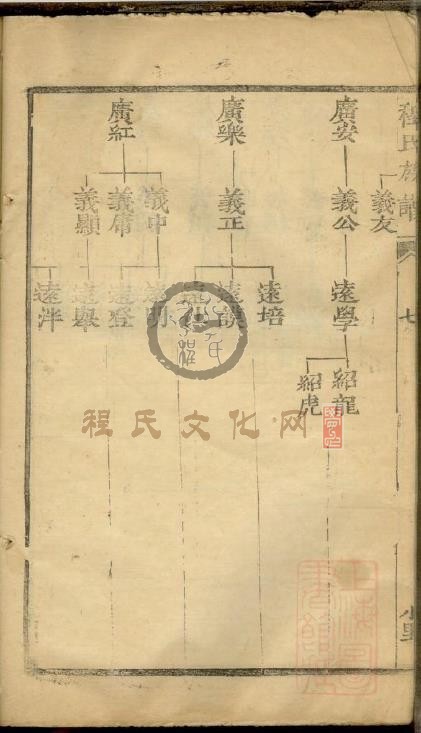 程氏族譜
七
義友
廣安
義公
遠學
紹龍
紹虎
廣樂
義正
遠培
遠謨
廣紅
義中
義庸
義顯
遠登
遠舉
遠泮
程氏文化网